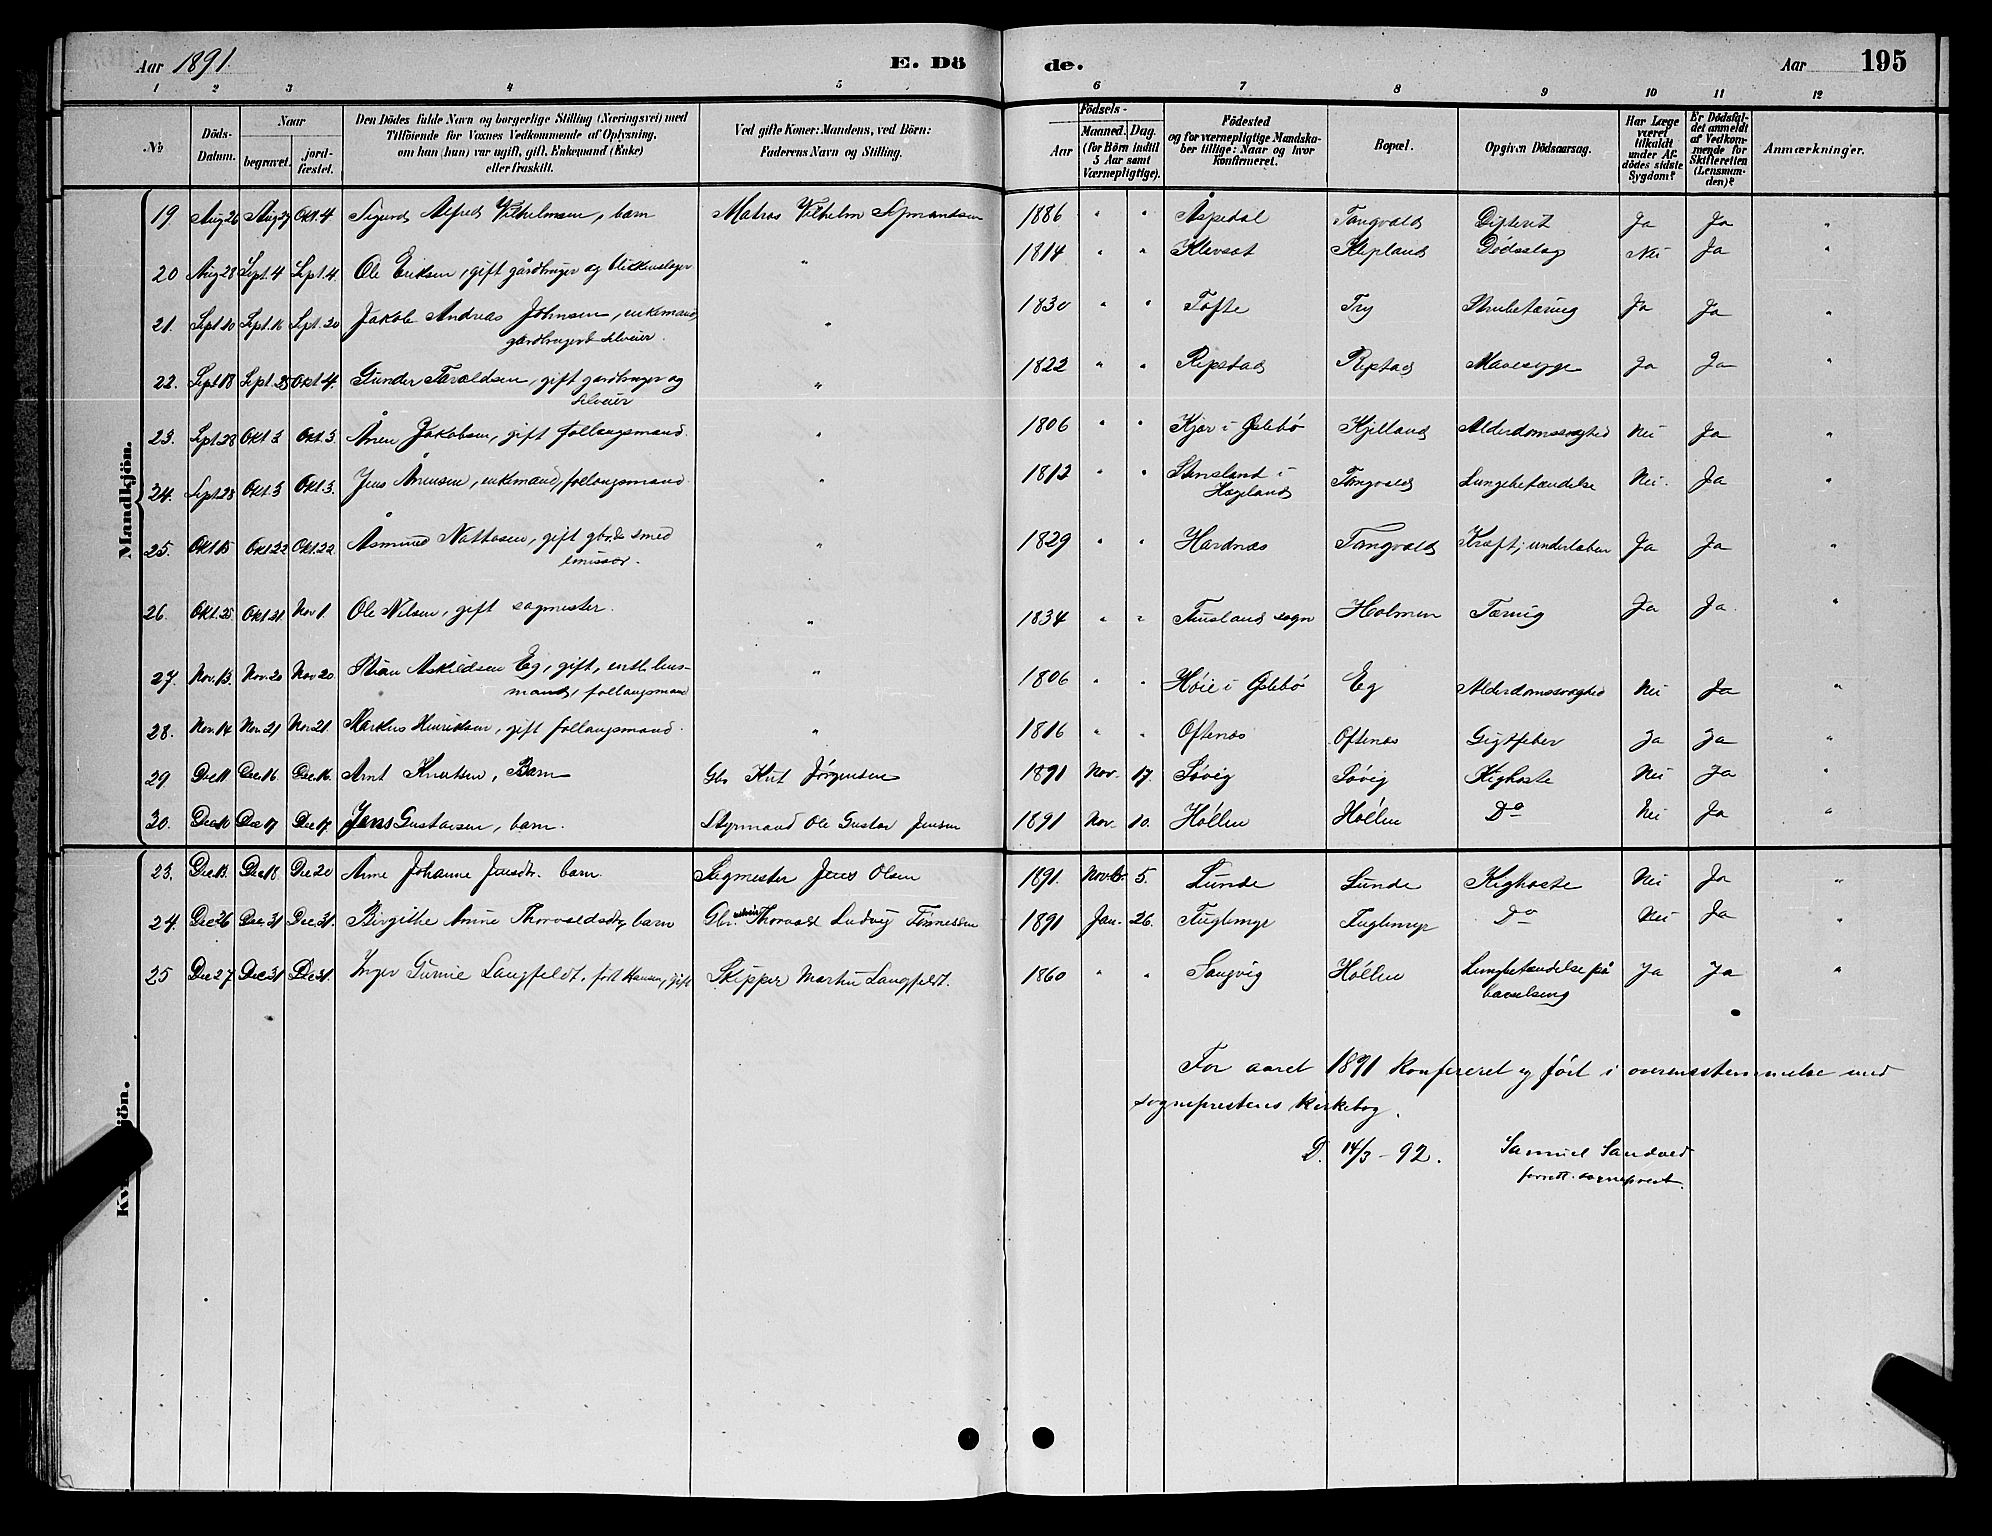 Aar 1891. E. Dö de. Aar 195
1 2 3 4 5 6 7 8 9 10 11 12
No. Döds-Datum. Naar begravet. jord-fæstet. Den Dödes fulde Navn og borgerlige Stilling (Næringsvei) med Tilföiende for Voxnes Vedkommende af Oplysning, om han (hun) var ugift, gift, Enkemand (Enke) eller fraskilt. Ved gifte Koner: Mandens, ved Börn: Faderens Navn og Stilling. Födsels- Aar Maaned. Dag. (for Börn indtil 5 Aar samt Værnepligtige). Födested og for værnepligtige Mandska-ber tillige: Naar og hvor Konfirmeret. Bopæl. Opgiven Dödsaarsag. Har Læge været tilkaldt under Af-dödes sidste Sygdom? Er Dödsfal-det anmeldt af Vedkom-mende for Skifteretten (Lensman-den)? Anmærkninger.
Mandkjön.
19. Aug 26 Aug 29 Okt. 4 Sigurd Alfred Vilhelmsen, barn Matros Vilhelm 1886 " " Åspedal Tangvald Difterit Ja Ja "
20 Aug 28 Sept. 4 Sept. 4. Ole Eriksen, gift gårdbruger og blikkenslager " 1814 " " Klevset Kleplands Dødsslag Nei Ja "
21. Sept. 10 Sept. 16 Sept. 20 Jakob Andreas Johnsen, enkemand, " 1830 " " Tofte Try Strubetæring Ja Ja "
gårdbruger & selveier.
22. Sept. 18 Sept. 25 Okt 4. Gunder Taraldsen, gift gardbruger og " 1822 " " Repstad Repstad Mavesyge Ja Ja "
selveier
23. Sept. 28 Okt 3 Okt. 3. Ånen Jakobsen, gift follaugsmand. " 1806 " " Kjær i Øslebø Kjelland Alderdomssvaghed Nei Ja "
24. Sept. 28 Okt. 3 Okt 3. Jens Ånensen, enkemand, follaugsmand " 1812 " " Stensland i Tangvald Lungebetændelse Nei. Ja "
Hægeland
25. Okt 15 Okt 22 Okt 22 Åsmund Nottosen, gift gbr. & smed " 1829 " " Hardnæs Tangvald Kræft i underlæben Ja Ja "
emissær.
26. Okt. 25 Okt 31. Nov 1. Ole Nilsen, gift sagmester. " 1834 " " Finsland sogn Holmen Tæring Ja Ja. "
27. Nov. 13. Nov. 20 Nov 20. Stian Askildsen Eg, gift, hus- " 1806 " " Høie i Øslebø Eg Alderdomssvaghed Nei Ja "
mand, follaugsmand
28. Nov. 14 Nov. 21 Nov. 21. Markus Henriksen, gift follaugsmand. " 1816 " " Oftenæs Oftenæs Gigtfeber Ja Ja "
29. Dec. 11 Dec. 16 Dec. 16. Arnt Knutsen, Barn Gbr Knut Jørgensen 1891 Nov. 17. Søvig Søvig Kighoste Nei Ja "
30. Dec. 10 Dec 17 Dec 17. Jens Gustavsen, barn. Styrmand Ole Gustav Jensen 1891 Nov. 10. Høllen Høllen Do Nei Ja "
Kv
jön.
23. Dec. 13. Dec. 18. Dec 20 Anne Johanne Jensdtr. barn. Sagmester Jens Olsen 1891. Nov 5. Lunde Lunde Kighoste Nei Ja "
24. Dec 26 Dec. 31 Dec. 31. Birgithe Amine Thorvaldsdtr, barn Gbr. Thorvald Ludvig Tønnessen 1891 Jan. 26. Fuglemyr Fuglemyr Do Nei Ja "
25 Dec 27 Dec 31 Dec 31. Inger Gurine Langfeldt, født Hansen, gift Skipper Martin Langfeldt. 1860 " " Langvig Høllen Lungbetændelse på Ja Ja "
barselseng
For aaret 1891 konfereret og ført i overensstemmelse med
sogneprestens kirkebog.
D. 14/3 - 92. Samuel Sandved
sogneprest.